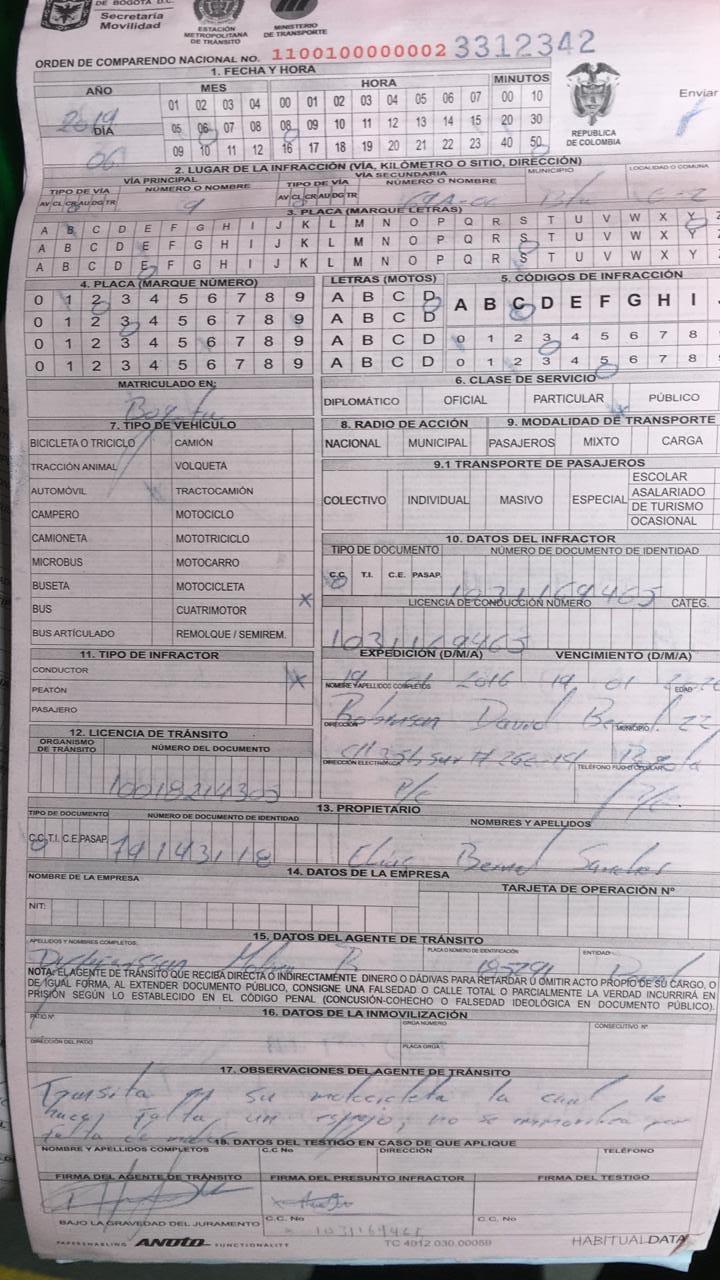 DE BOGOTÁ D.C.
Secretaría
Movilidad
ESTACIÓN
METROPOLITANA
DE TRÁNSITO
MINISTERIO
DE TRANSPORTE
ORDEN DE COMPARENDO NACIONAL NO. 11001000000023312342
1. FECHA Y HORA
AÑO MES HORA MINUTOS
01 02 03 04 00 01 02 03 04 05 06 07 00 10
2019
DÍA 05 06 07 08 08 09 10 11 12 13 14 15 20 30
06 09 10 11 12 16 17 18 19 20 21 22 23 40 50
REPUBLICA
DE COLOMBIA
Enviar
2. LUGAR DE LA INFRACCIÓN (VÍA, KILÓMETRO O SITIO, DIRECCIÓN)
VÍA PRINCIPAL VÍA SECUNDARIA MUNICIPIO LOCALIDAD O COMUNA
TIPO DE VÍA NÚMERO O NOMBRE TIPO DE VÍA NÚMERO O NOMBRE
AV CL CR AU DG TR 9 AV CL CR AU DG TR
3. PLACA (MARQUE LETRAS)
A B C D E F G H I J K L M N O P Q R S T U V W X Y Z
A B C D E F G H I J K L M N O P Q R S T U V W X Y
A B C D E F G H I J K L M N O P Q R S T U V W X Y
4. PLACA (MARQUE NÚMERO) LETRAS (MOTOS) 5. CÓDIGOS DE INFRACCIÓN
0 1 2 3 4 5 6 7 8 9 A B C D A B C D E F G H I
0 1 2 3 4 5 6 7 8 9 A B C D
0 1 2 3 4 5 6 7 8 9 A B C D 0 1 2 3 4 5 6 7 8
0 1 2 3 4 5 6 7 8 9 A B C D 0 1 2 3 4 5 6 7 8
MATRICULADO EN:
6. CLASE DE SERVICIO
DIPLOMÁTICO OFICIAL PARTICULAR X PÚBLICO
7. TIPO DE VEHÍCULO
8. RADIO DE ACCIÓN 9. MODALIDAD DE TRANSPORTE
NACIONAL MUNICIPAL PASAJEROS MIXTO CARGA
BICICLETA O TRICICLO CAMIÓN
TRACCIÓN ANIMAL VOLQUETA
AUTOMÓVIL TRACTOCAMIÓN
CAMPERO MOTOCICLO
CAMIONETA MOTOTRICICLO
MICROBUS MOTOCARRO
BUSETA MOTOCICLETA X
BUS CUATRIMOTOR
BUS ARTÍCULADO REMOLQUE / SEMIREM.
9.1 TRANSPORTE DE PASAJEROS
COLECTIVO INDIVIDUAL MASIVO ESPECIAL
ESCOLAR
ASALARIADO
DE TURISMO
OCASIONAL
10. DATOS DEL INFRACTOR
TIPO DE DOCUMENTO NÚMERO DE DOCUMENTO DE IDENTIDAD
C.C. T.I. C.E. PASAP. 1031169465
LICENCIA DE CONDUCCIÓN NÚMERO CATEG.
1031169465
EXPEDICIÓN (D/M/A) VENCIMIENTO (D/M/A)
19 01 2016 19 01
NOMBRE Y APELLIDOS COMPLETOS EDAD
David 22
DIRECCIÓN MUNICIPIO
DIRECCIÓN ELECTRÓNICA TELÉFONO FIJO O CELULAR
11. TIPO DE INFRACTOR
CONDUCTOR X
PEATÓN
PASAJERO
12. LICENCIA DE TRÁNSITO
ORGANISMO
DE TRÁNSITO NÚMERO DEL DOCUMENTO
10018214303
13. PROPIETARIO
TIPO DE DOCUMENTO NÚMERO DE DOCUMENTO DE IDENTIDAD NOMBRES Y APELLIDOS
C.C. T.I. C.E. PASAP. 79143118
14. DATOS DE LA EMPRESA
NOMBRE DE LA EMPRESA TARJETA DE OPERACIÓN Nº
NIT:
15. DATOS DEL AGENTE DE TRÁNSITO
APELLIDOS Y NOMBRES COMPLETOS PLACA O NÚMERO DE IDENTIFICACIÓN ENTIDAD
NOTA: EL AGENTE DE TRÁNSITO QUE RECIBA DIRECTA O INDIRECTAMENTE DINERO O DÁDIVAS PARA RETARDAR U OMITIR ACTO PROPIO DE SU CARGO, O
DE IGUAL FORMA, AL EXTENDER DOCUMENTO PÚBLICO, CONSIGNE UNA FALSEDAD O CALLE TOTAL O PARCIALMENTE LA VERDAD INCURRIRÁ EN
PRISIÓN SEGÚN LO ESTABLECIDO EN EL CÓDIGO PENAL (CONCUSIÓN-COHECHO O FALSEDAD IDEOLÓGICA EN DOCUMENTO PÚBLICO).
16. DATOS DE LA INMOVILIZACIÓN
PATIO Nº GRÚA NÚMERO CONSECUTIVO Nº
DIRECCIÓN DEL PATIO PLACA GRÚA
17. OBSERVACIONES DEL AGENTE DE TRÁNSITO
Transita en su motocicleta la cual le
hace falta un espejo, no se inmoviliza por
falta de
18. DATOS DEL TESTIGO EN CASO DE QUE APLIQUE
NOMBRE Y APELLIDOS COMPLETOS C.C No DIRECCIÓN TELÉFONO
FIRMA DEL AGENTE DE TRÁNSITO FIRMA DEL PRESUNTO INFRACTOR FIRMA DEL TESTIGO
BAJO LA GRAVEDAD DEL JURAMENTO C.C. No 1031169465 C.C. No
PAPER ENABLING ANOTO FUNCTIONALITY TC 4012 030.00059 HABITUALDATA